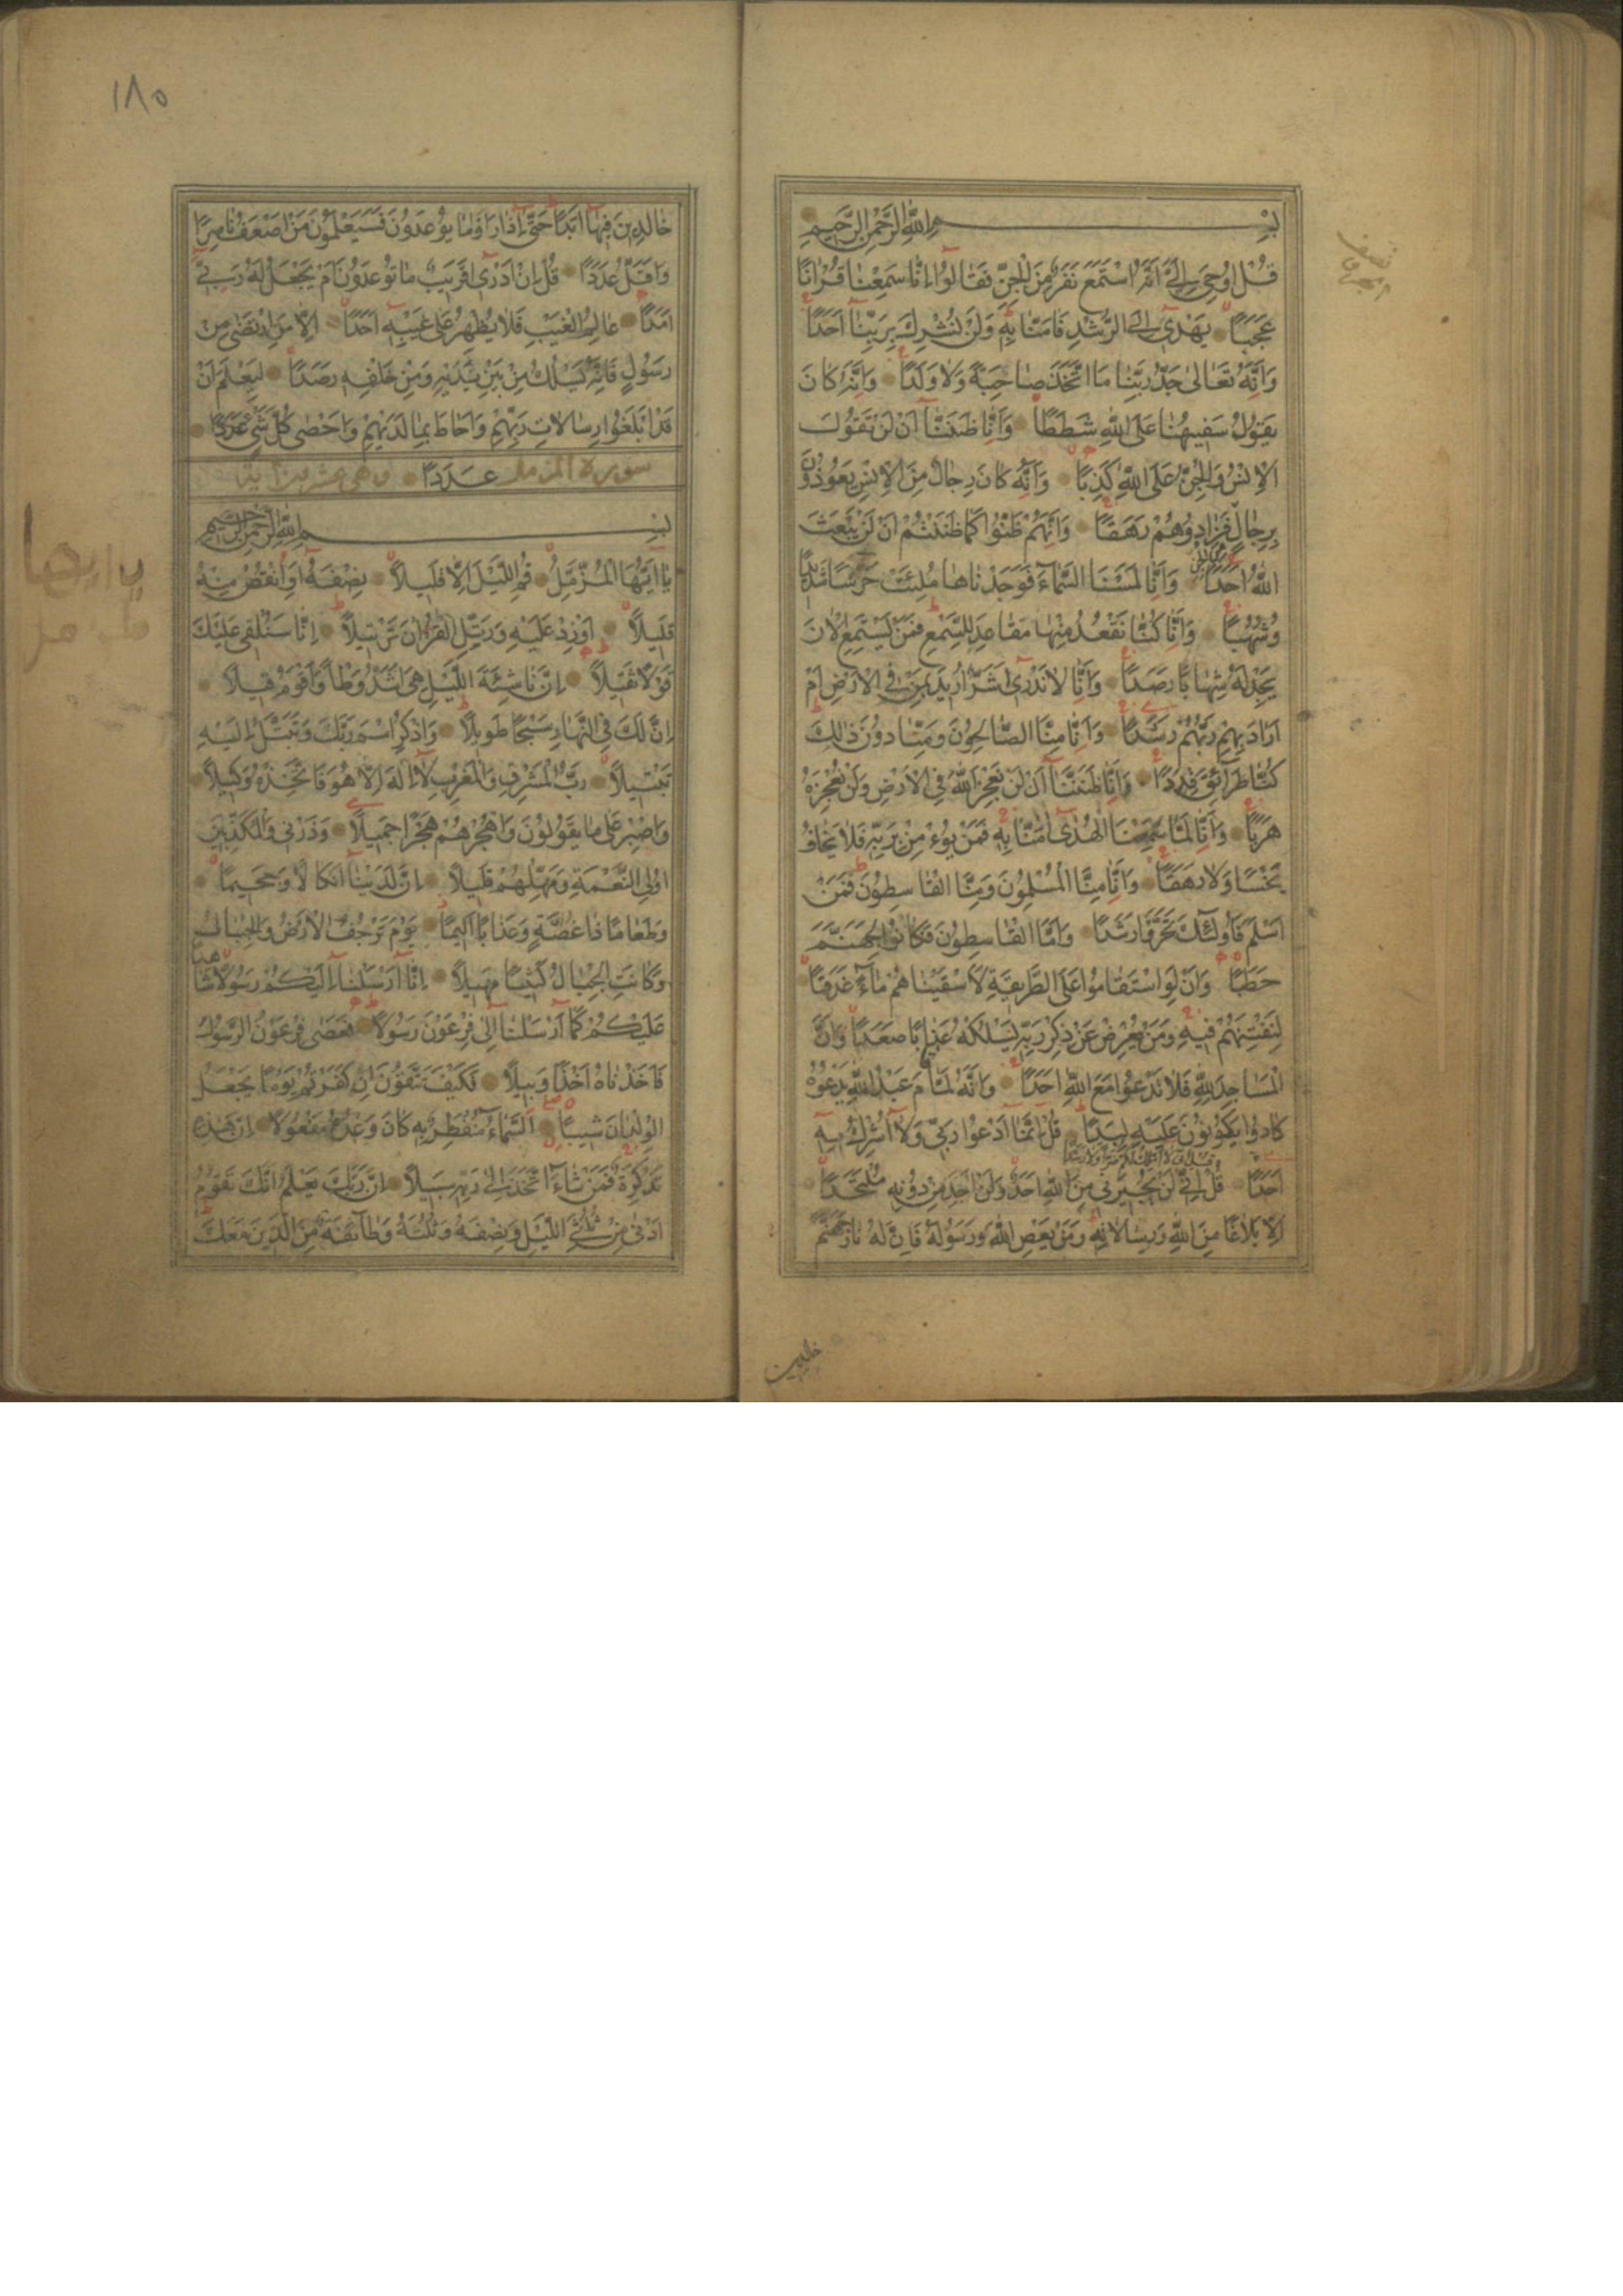 بِسْمِ اللّٰهِ الرَّحْمٰنِ الرَّحِيمِ
قُلْ اُوحِىَ اِلَىَّ اَنَّهُ اسْتَمَعَ نَفَرٌ مِنَ الْجِنِّ فَقَالُوا اِنَّا سَمِعْنَا قُرْاٰنًا
عَجَبًا يَهْدِى اِلَى الرُّشْدِ فَاٰمَنَّا بِهِ وَلَنْ نُشْرِكَ بِرَبِّنَا اَحَدًا
وَاَنَّهُ تَعَالٰى جَدُّ رَبِّنَا مَا اتَّخَذَ صَاحِبَةً وَلَا وَلَدًا وَاَنَّهُ كَانَ
يَقُولُ سَفِيهُنَا عَلَى اللّٰهِ شَطَطًا وَاَنَّا ظَنَنَّا اَنْ لَنْ تَقُولَ
الْاِنْسُ وَالْجِنُّ عَلَى اللّٰهِ كَذِبًا وَاَنَّهُ كَانَ رِجَالٌ مِنَ الْاِنْسِ يَعُوذُونَ
بِرِجَالٍ فَزَادُوهُمْ رَهَقًا وَاَنَّهُمْ ظَنُّوا كَمَا ظَنَنْتُمْ اَنْ لَنْ يَبْعَثَ
اللّٰهُ اَحَدًا وَاَنَّا لَمَسْنَا السَّمَاءَ فَوَجَدْنَاهَا مُلِئَتْ حَرَسًا شَدِيدًا
وَشُهُبًا وَاَنَّا كُنَّا نَقْعُدُ مِنْهَا مَقَاعِدَ لِلسَّمْعِ فَمَنْ يَسْتَمِعِ الْاٰنَ
يَجِدْ لَهُ شِهَابًا رَصَدًا وَاَنَّا لَا نَدْرِى اَشَرٌّ اُرِيدَ بِمَنْ فِى الْاَرْضِ اَمْ
اَرَادَ بِهِمْ رَبُّهُمْ رَشَدًا وَاَنَّا مِنَّا الصَّالِحُونَ وَمِنَّا دُونَ ذٰلِكَ
كُنَّا طَرَائِقَ قِدَدًا وَاَنَّا ظَنَنَّا اَنْ لَنْ نُعْجِزَ اللّٰهَ فِى الْاَرْضِ وَلَنْ نُعْجِزَهُ
هَرَبًا وَاَنَّا لَمَّا سَمِعْنَا الْهُدٰى اٰمَنَّا بِهِ فَمَنْ يُؤْمِنْ بِرَبِّهِ فَلَا يَخَافُ
بَخْسًا وَلَا رَهَقًا وَاَنَّا مِنَّا الْمُسْلِمُونَ وَمِنَّا الْقَاسِطُونَ فَمَنْ
اَسْلَمَ فَاُولٰئِكَ تَحَرَّوْا رَشَدًا وَاَمَّا الْقَاسِطُونَ فَكَانُوا لِجَهَنَّمَ
حَطَبًا وَاَنْ لَوِ اسْتَقَامُوا عَلَى الطَّرِيقَةِ لَاَسْقَيْنَاهُمْ مَاءً غَدَقًا
لِنَفْتِنَهُمْ فِيهِ وَمَنْ يُعْرِضْ عَنْ ذِكْرِ رَبِّهِ يَسْلُكْهُ عَذَابًا صَعَدًا وَاَنَّ
الْمَسَاجِدَ لِلّٰهِ فَلَا تَدْعُوا مَعَ اللّٰهِ اَحَدًا وَاَنَّهُ لَمَّا قَامَ عَبْدُ اللّٰهِ يَدْعُوهُ
كَادُوا يَكُونُونَ عَلَيْهِ لِبَدًا قُلْ اِنَّمَا اَدْعُوا رَبِّى وَلَا اُشْرِكُ بِهِ
قُلْ اِنِّى لَا اَمْلِكُ لَكُمْ ضَرًّا وَلَا رَشَدًا
اَحَدًا قُلْ اِنِّى لَنْ يُجِيرَنِى مِنَ اللّٰهِ اَحَدٌ وَلَنْ اَجِدَ مِنْ دُونِهِ مُلْتَحَدًا
اِلَّا بَلَاغًا مِنَ اللّٰهِ وَرِسَالَاتِهِ وَمَنْ يَعْصِ اللّٰهَ وَرَسُولَهُ فَاِنَّ لَهُ نَارَ جَهَنَّمَ
خالدين
نصف
١٨٥
خَالِدِينَ فِيهَا اَبَدًا حَتّٰى اِذَا رَاَوْا مَا يُوعَدُونَ فَسَيَعْلَمُونَ مَنْ اَضْعَفُ نَاصِرًا
وَاَقَلُّ عَدَدًا قُلْ اِنْ اَدْرِى اَقَرِيبٌ مَا تُوعَدُونَ اَمْ يَجْعَلُ لَهُ رَبِّى
اَمَدًا عَالِمُ الْغَيْبِ فَلَا يُظْهِرُ عَلٰى غَيْبِهِ اَحَدًا اِلَّا مَنِ ارْتَضٰى مِنْ
رَسُولٍ فَاِنَّهُ يَسْلُكُ مِنْ بَيْنِ يَدَيْهِ وَمِنْ خَلْفِهِ رَصَدًا لِيَعْلَمَ اَنْ
قَدْ اَبْلَغُوا رِسَالَاتِ رَبِّهِمْ وَاَحَاطَ بِمَا لَدَيْهِمْ وَاَحْصٰى كُلَّ شَىْءٍ عَدَدًا
سورة المزمل عَدَدًا وهى عشرون اية
بِسْمِ اللّٰهِ الرَّحْمٰنِ الرَّحِيمِ
يَا اَيُّهَا الْمُزَّمِّلُ قُمِ اللَّيْلَ اِلَّا قَلِيلًا نِصْفَهُ اَوِ انْقُصْ مِنْهُ
قَلِيلًا اَوْ زِدْ عَلَيْهِ وَرَتِّلِ الْقُرْاٰنَ تَرْتِيلًا اِنَّا سَنُلْقِى عَلَيْكَ
قَوْلًا ثَقِيلًا اِنَّ نَاشِئَةَ اللَّيْلِ هِىَ اَشَدُّ وَطْأً وَاَقْوَمُ قِيلًا
اِنَّ لَكَ فِى النَّهَارِ سَبْحًا طَوِيلًا وَاذْكُرِ اسْمَ رَبِّكَ وَتَبَتَّلْ اِلَيْهِ
تَبْتِيلًا رَبُّ الْمَشْرِقِ وَالْمَغْرِبِ لَا اِلٰهَ اِلَّا هُوَ فَاتَّخِذْهُ وَكِيلًا
وَاصْبِرْ عَلٰى مَا يَقُولُونَ وَاهْجُرْهُمْ هَجْرًا جَمِيلًا وَذَرْنِى وَالْمُكَذِّبِينَ
اُولِى النَّعْمَةِ وَمَهِّلْهُمْ قَلِيلًا اِنَّ لَدَيْنَا اَنْكَالًا وَجَحِيمًا
وَطَعَامًا ذَا غُصَّةٍ وَعَذَابًا اَلِيمًا يَوْمَ تَرْجُفُ الْاَرْضُ وَالْجِبَالُ
وَكَانَتِ الْجِبَالُ كَثِيبًا مَهِيلًا اِنَّا اَرْسَلْنَا اِلَيْكُمْ رَسُولًا شَاهِدًا
عَلَيْكُمْ كَمَا اَرْسَلْنَا اِلٰى فِرْعَوْنَ رَسُولًا فَعَصٰى فِرْعَوْنُ الرَّسُولَ
فَاَخَذْنَاهُ اَخْذًا وَبِيلًا فَكَيْفَ تَتَّقُونَ اِنْ كَفَرْتُمْ يَوْمًا يَجْعَلُ
الْوِلْدَانَ شِيبًا اَلسَّمَاءُ مُنْفَطِرٌ بِهِ كَانَ وَعْدُهُ مَفْعُولًا اِنَّ هٰذِهِ
تَذْكِرَةٌ فَمَنْ شَاءَ اتَّخَذَ اِلٰى رَبِّهِ سَبِيلًا اِنَّ رَبَّكَ يَعْلَمُ اَنَّكَ تَقُومُ
اَدْنٰى مِنْ ثُلُثَىِ اللَّيْلِ وَنِصْفَهُ وَثُلُثَهُ وَطَائِفَةٌ مِنَ الَّذِينَ مَعَكَ
يا ايها